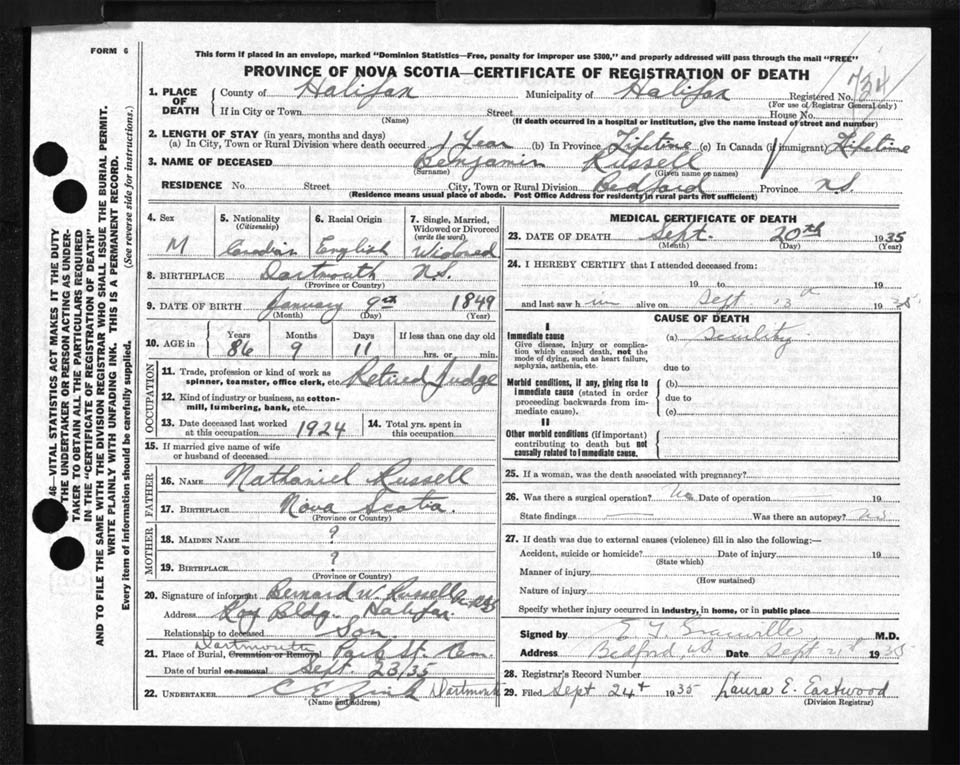 FORM 6
This form if placed in an envelope, marked "Dominion Statistics—Free, penalty for improper use $300," and properly addressed will pass through the mail "FREE"
PROVINCE OF NOVA SCOTIA—CERTIFICATE OF REGISTRATION OF DEATH
734
1. PLACE OF DEATH
County of Halifax Municipality of Halifax Registered No.
(For use of Registrar General only)
If in City or Town Street House No.
(Name) (If death occurred in a hospital or institution, give the name instead of street and number)
2. LENGTH OF STAY (in years, months and days)
(a) In City, Town or Rural Division where death occurred 1 Year (b) In Province Lifetime (c) In Canada (if immigrant) Lifetime
3. NAME OF DECEASED Benjamin Russell
(Surname) (Given name or names)
RESIDENCE No. Street City, Town or Rural Division Bedford Province N.S.
(Residence means usual place of abode. Post Office Address for residents in rural parts not sufficient)
4. Sex M
5. Nationality (Citizenship) Canadian
6. Racial Origin English
7. Single, Married, Widowed or Divorced (write the word) Widowed
8. BIRTHPLACE Dartmouth N.S.
(Province or Country)
9. DATE OF BIRTH January 9th 1849
(Month) (Day) (Year)
10. AGE in Years 86 Months 9 Days 11 If less than one day old
hrs. or min.
OCCUPATION
11. Trade, profession or kind of work as spinner, teamster, office clerk, etc. Retired Judge
12. Kind of industry or business, as cotton-mill, lumbering, bank, etc.
13. Date deceased last worked at this occupation 1924
14. Total yrs. spent in this occupation
15. If married give name of wife or husband of deceased
FATHER
16. NAME Nathaniel Russell
17. BIRTHPLACE Nova Scotia
(Province or Country)
MOTHER
18. MAIDEN NAME ?
19. BIRTHPLACE ?
(Province or Country)
20. Signature of informant Bernard W. Russell
Address Roy Bldg. Halifax
Relationship to deceased Son.
21. Place of Burial, Cremation or Removal Dartmouth Park St. Cem.
Date of burial or removal Sept. 23/35
22. UNDERTAKER C E Zink Dartmouth
(Name and address)
MEDICAL CERTIFICATE OF DEATH
23. DATE OF DEATH Sept. 20th 1935
(Month) (Day) (Year)
24. I HEREBY CERTIFY that I attended deceased from:
19 to 19
and last saw him alive on Sept 1935
CAUSE OF DEATH
I
Immediate cause
Give disease, injury or complication which caused death, not the mode of dying, such as heart failure, asphyxia, asthenia, etc.
(a) Senility
due to
Morbid conditions, if any, giving rise to immediate cause (stated in order proceeding backwards from immediate cause).
(b)
due to
(c)
II
Other morbid conditions (if important) contributing to death but not causally related to immediate cause.
25. If a woman, was the death associated with pregnancy?
26. Was there a surgical operation? No Date of operation — 19
State findings — Was there an autopsy? No
27. If death was due to external causes (violence) fill in also the following:—
Accident, suicide or homicide? Date of injury 19
(State which)
Manner of injury
(How sustained)
Nature of injury
Specify whether injury occurred in industry, in home, or in public place
Signed by E. T. Granville M.D.
Address Bedford, NS Date Sept 21st 1935
28. Registrar's Record Number
29. Filed Sept 24th 1935 Laura E. Eastwood
(Division Registrar)
VITAL STATISTICS ACT MAKES IT THE DUTY
THE UNDERTAKER OR PERSON ACTING AS UNDERTAKER TO OBTAIN ALL THE PARTICULARS REQUIRED
IN THE "CERTIFICATE OF REGISTRATION OF DEATH"
AND TO FILE THE SAME WITH THE DIVISION REGISTRAR WHO SHALL ISSUE THE BURIAL PERMIT.
WRITE PLAINLY WITH UNFADING INK. THIS IS A PERMANENT RECORD.
Every item of information should be carefully supplied. (See reverse side for instructions.)